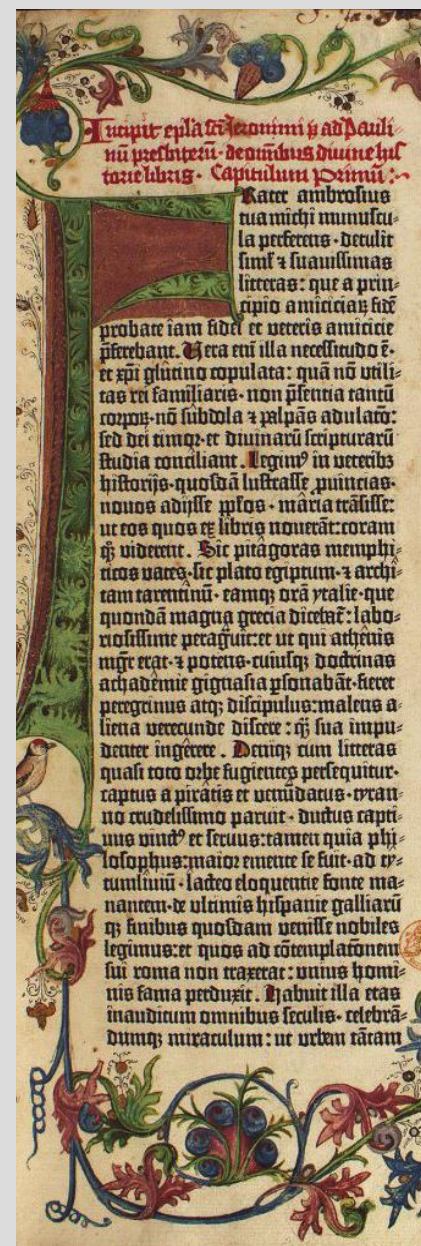 Incipit epla sci Ieronimi p̄ ad Pauli⸗
nū presbiterū · de omībus divine his
torie libris · Capitulum Primū :~
FRater ambrosius
tua michi munuscu⸗
la perferens · detulit
simł ⁊ suavissimas
litteras : que a prin⸗
cipio amiciciaꝝ fidē
probate iam fidei et veteris amicicie
p̄ferebant. Vera enī illa necessitudo ē ·
et xp̄i glutino copulata : quā nō utili⸗
tas rei familiaris · non p̄sentia tantū
corpoꝝ · nō subdola ⁊ palpās adulatō :
sed dei timor · et divinarū scripturarū
studia conciliant . Legimꝰ in veteribꝫ
historijs · quosdā lustrasse ꝓvincias ·
novos adijsse pp̄los · maria trāsisse :
ut eos quos ex libris noverāt : coram
qꝫ viderent . Sic pitagoras memphi⸗
ticos vates · sic plato egiptum · ⁊ archi⸗
tam tarentinū · eamqꝫ orā ytalie · que
quondā magna grecia dicebat̄ : labo⸗
riosissime peragravit : et ut qui athenis
mgr̄ erat · ⁊ potens · cuiusqꝫ doctrinas
achademie gignasia ꝑsonabāt · fieret
peregrinus atqꝫ discipulus : malens a⸗
liena verecunde discere : qꝫ sua impu⸗
denter ingerere . Deniqꝫ cum litteras
quasi toto orbe fugientes persequitur ·
captus a piratis et venūdatus · tyran⸗
no crudelissimo paruit · ductus capti⸗
vus vinctꝰ et servus : tamen quia phi⸗
losophus : maior emente se fuit · ad ty⸗
tumliviū · lacteo eloquentie fonte ma⸗
nantem · de ultimis hispanie galliarū
qꝫ finibus quosdam venisse nobiles
legimus : et quos ad cōtemplatōnem
sui roma non traxerat : unius homi⸗
nis fama perduxit . Habuit illa etas
inauditum omnibus seculis · celebrā⸗
dumqꝫ miraculum : ut urbem tātam